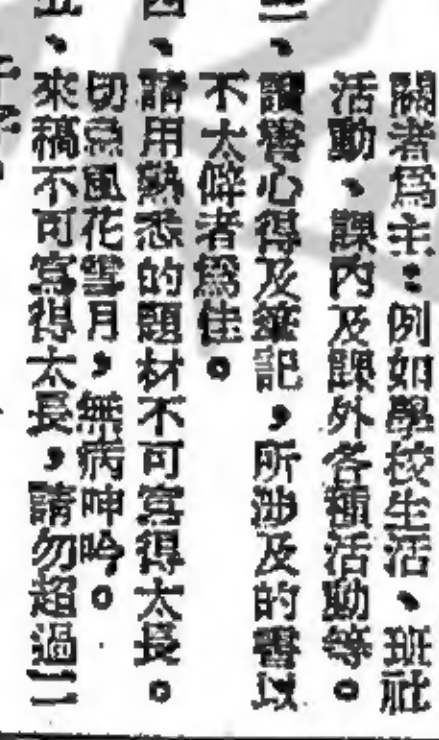 關者爲主：例如學校生活、班社
活動、課內及課外各種活動等。
三、讀書心得及筆記，所涉及的書以
不太僻者爲佳。
四、請用熟悉的題材不可寫得太長。
切忌風花雪月，無病呻吟。
五、來稿不可寫得太長，請勿超過二